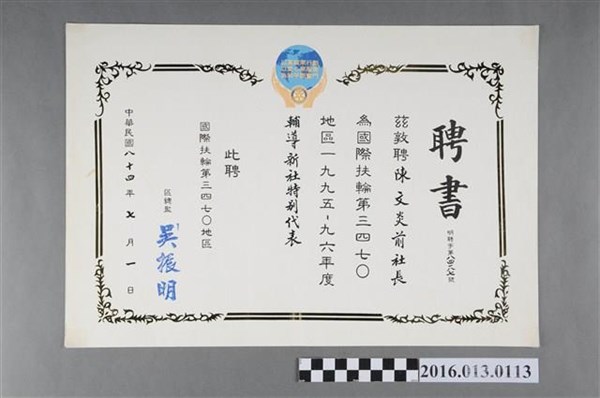 聘書
茲敦聘陳文炎前社長
為國際扶輪第三四七〇
地區一九九五-九六年度
輔導新社特別代表
此聘
國際扶輪第三四七〇地區
區總監
吳振明
中華民國八十四年七月一日
2016.013.0113